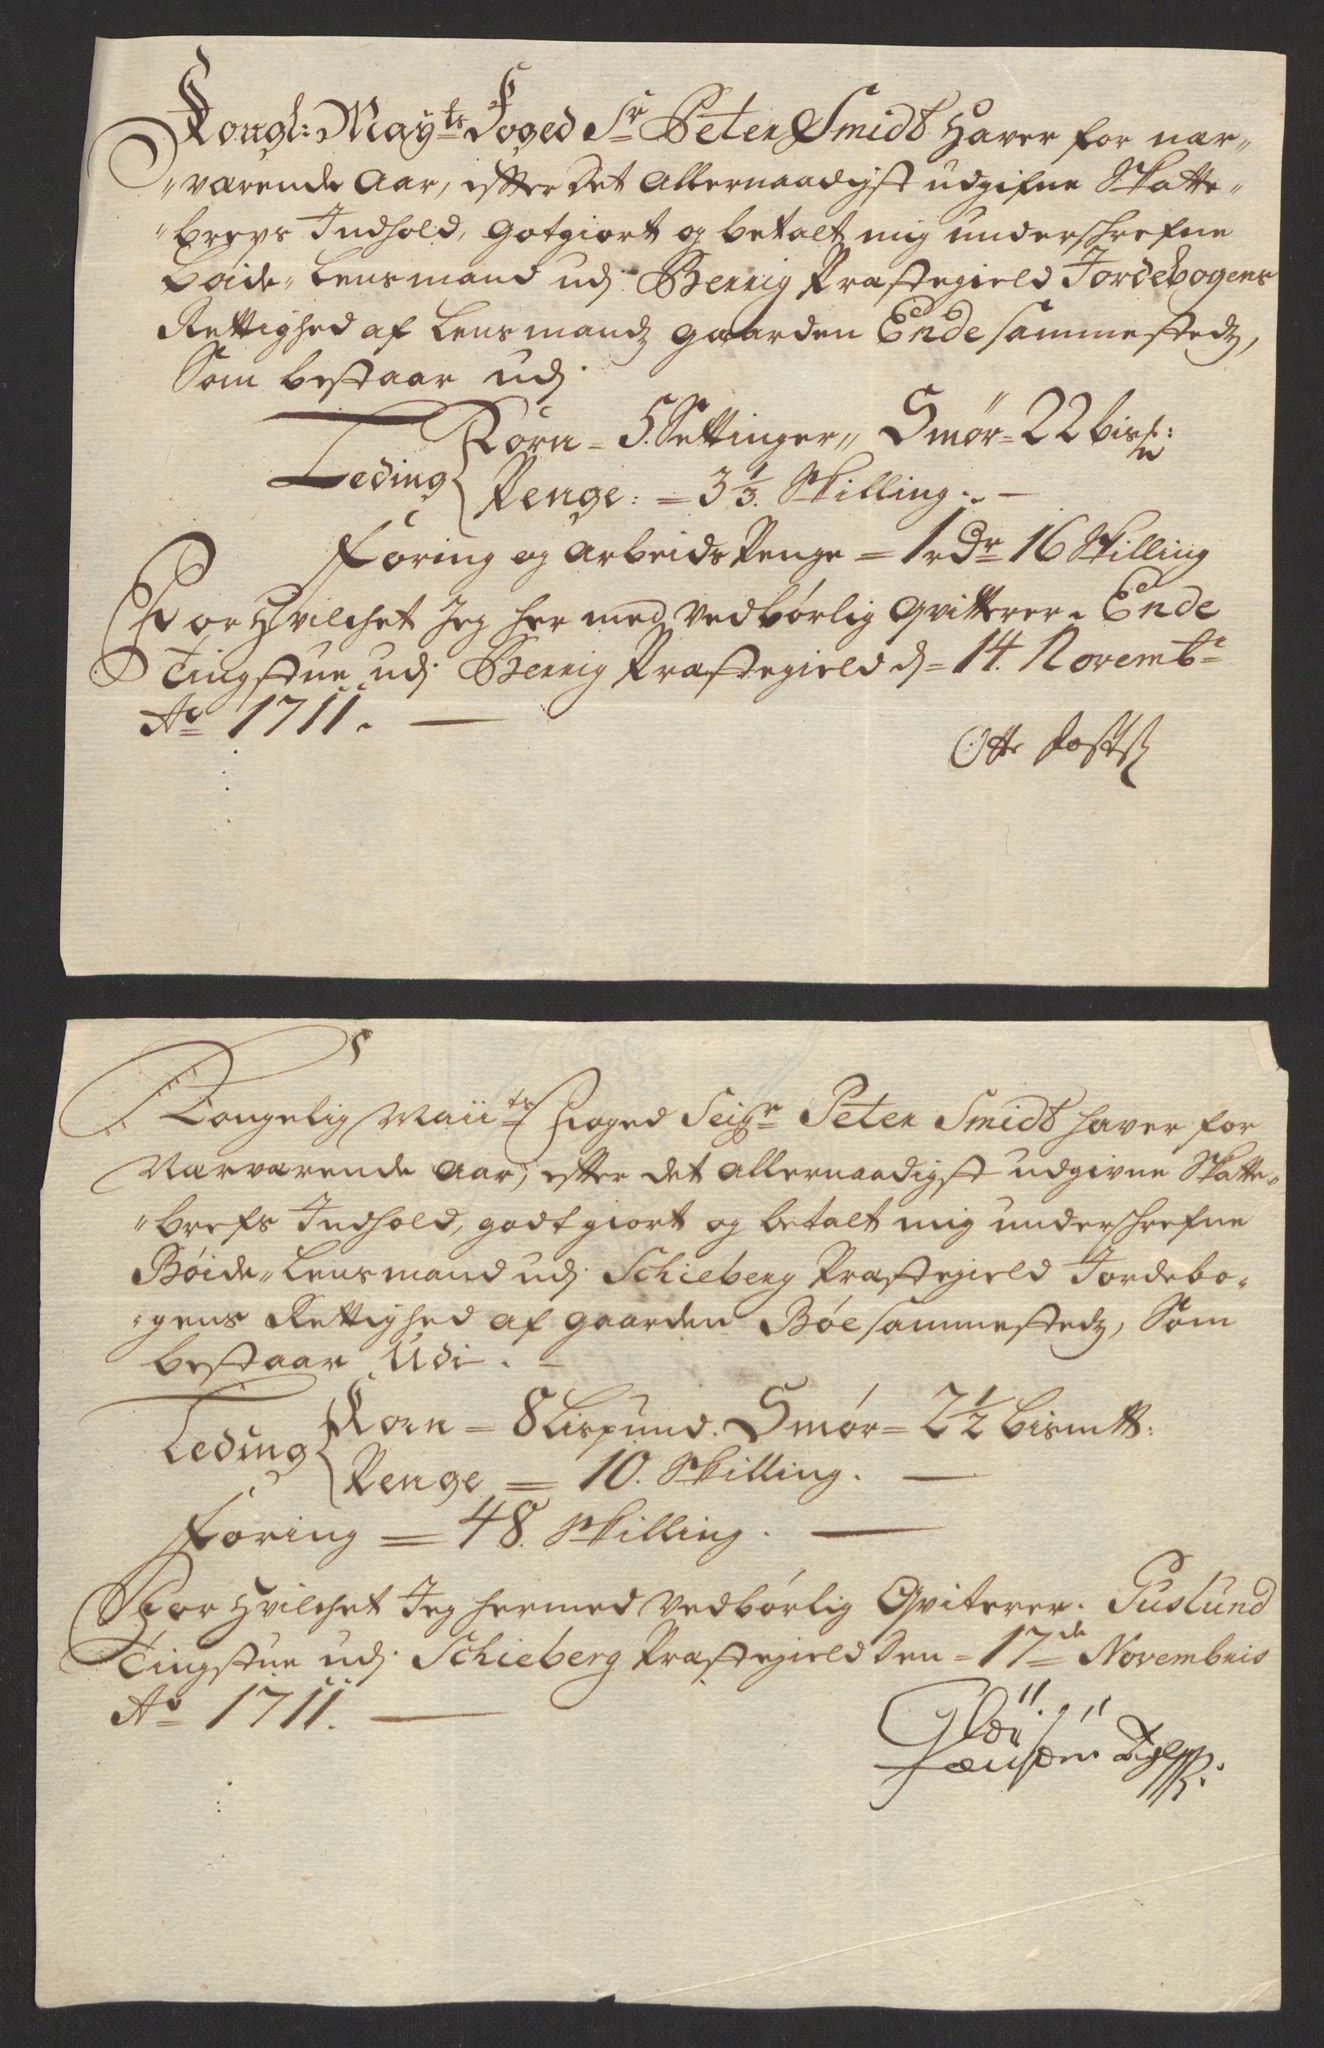 Kongl: Mayts Foged Sr Peter Smidt Haver for nær-
værende Aar, effter det Allernaadigst udgifne Skatte-
brevs Indhold, Gotgiort og betalt mig underschrefne
Bøide-Lensmand udj Bervig Præstegield Jordebogens
Rettighed af Lensmandz gaarden Ende sammestedz,
Som bestaar udj.
Korn - 5. Settinger, Smør - 22 bis:
Leding
Penge: - 3 1/3. Skilling. -
Foring og Arbeids Penge - 1 rdr 16 Skilling
For Hvilchet Jeg her med Vedbørlig Qvitterer. Ende
Tingstue udj Bervig Præstegield d- 14. Novembr
Ao 1711.
Otte
Kongelig Maiits Foged Seigr Peter Smidt haver for
Nærværende Aar, effter det Allernaadigst udgivne Skatte-
brefs Indhold, godtgiort og betalt mig underschrefne
Bøide-Lensmand udj Schieberg Præstegield Jordebo-
gens Rettighed af gaarden Böe sammestedz, Som
bestaar Udi.
Korn - 8 Lispund. Smør - 2 1/2 Bismtt:
Leding
Penge - 10. Skilling.
Foring - 48. Skilling.
For Hvilchet Jeg hermed Vedbørlig Qviterer. Guslund
Tingstue udj Schieberg Præstegield den - 17de Novembris
Ao 1711.